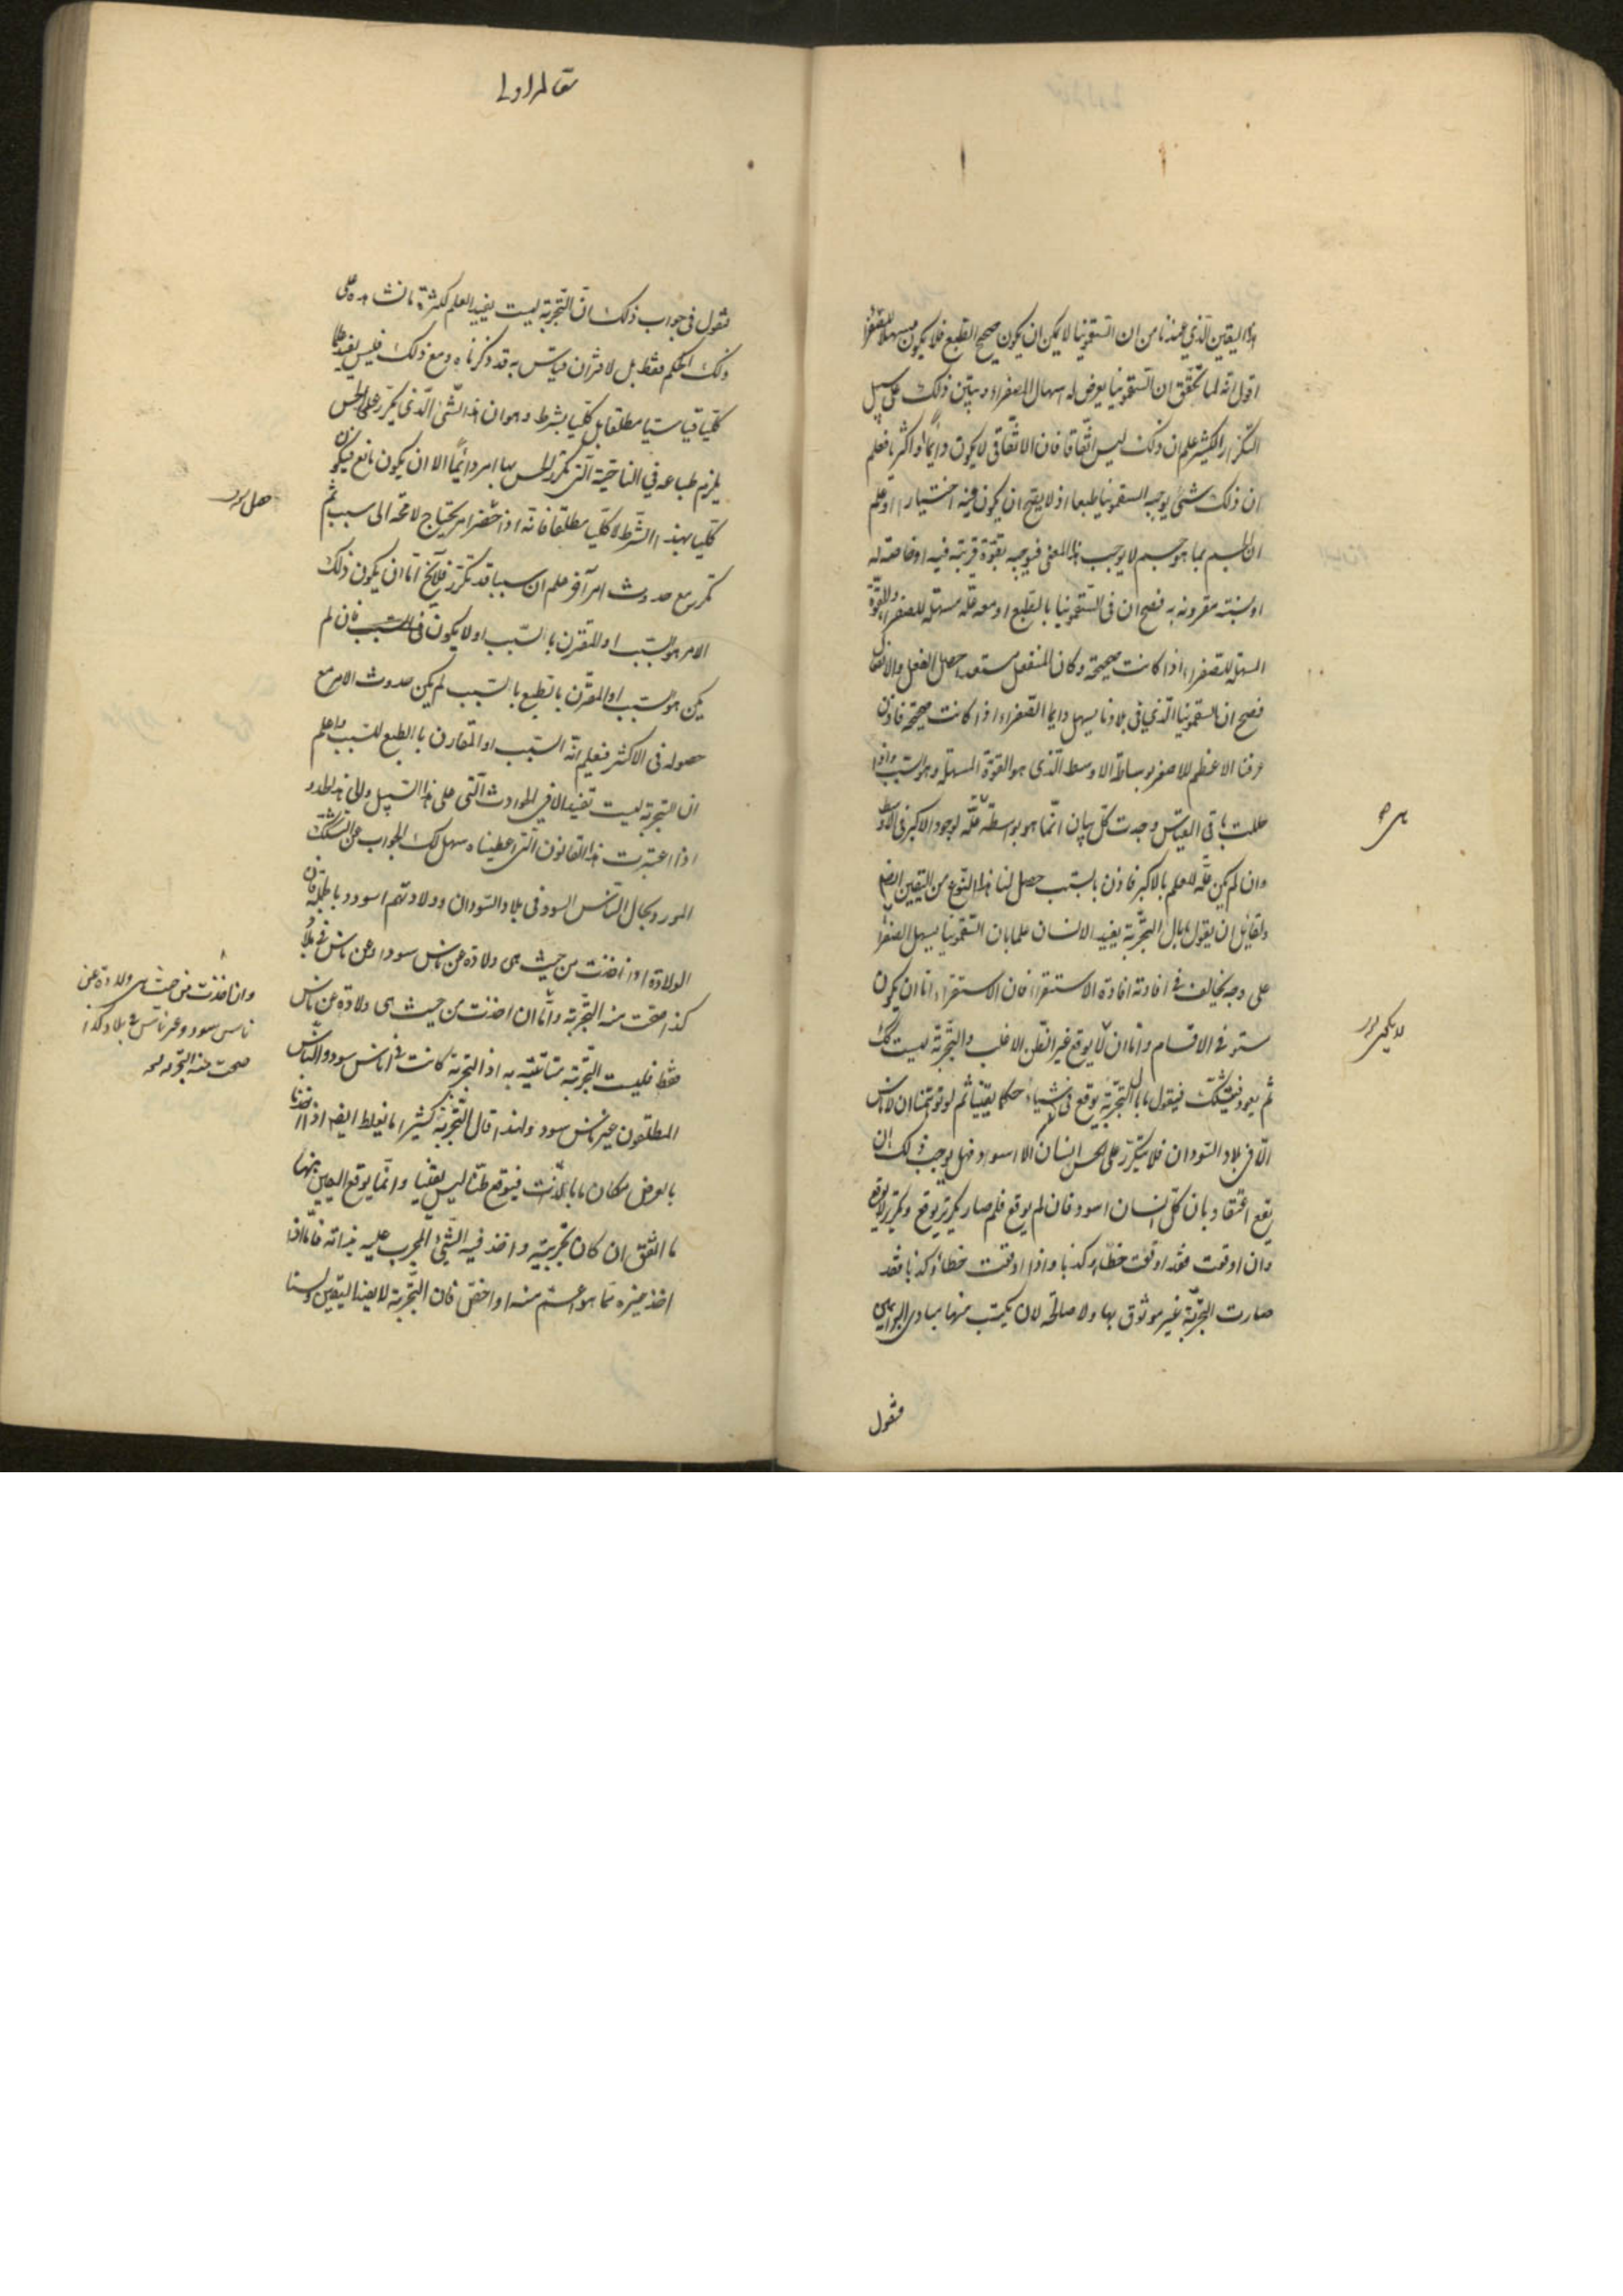 هذا اليقين الذي عندنا من ان السقمونيا لا يمكن ان يكون صحيح الطبع فلا يكون مسهلا للصفراء
اقول انه لما تحقق ان السقمونيا يعرض له اسهال الصفراء وتبين ذلك على سبيل
التكرار الكثير علم ان ذلك ليس اتفاقا فان الاتفاقي لا يكون دائما او اكثريا فعلم
ان ذلك شئ يوجبه السقمونيا طبعا اذ لا يصح ان يكون فيه اختيارا اذ علم
ان الجسم بما هو جسم لا يوجب هذا المعنى فيوجبه بقوة قريبة فيه او خاصة له
او نسبة مقرونة به فصح ان في السقمونيا بالطبع او معه علة مسهلة للصفراء والقوة
المسهلة للصفراء اذا كانت صحيحة وكان المنفعل مستعدا حصل الفعل والانفعال
فصح ان السقمونيا الذي في بلادنا يسهل دايما الصفراء اذا كانت صحيحة فاذن
عرفنا الاعظم للاصغر بوساطة الاوسط الذي هو القوة المسهلة وهو السبب واذا
حللت باقي القياس وجدت كل بيان انما هو بواسطة علة لوجود الاكبر في الاوسط
هى
وان لم يكن علة للعلم بالاكبر فاذن بالسبب حصل لنا هذا النوع من اليقين ايضا
ولقايل ان يقول ما بال التجربة يفيد الانسان علما بان السقمونيا يسهل الصفراء
على وجه يخالف في افادته افادة الاستقراء فان الاستقراء اما ان يكون
ستو في الاقسام واما ان لا يوقع غير الظن الاغلب والتجربة ليست كك
ثم يعود فيتشكك فيقول ما بال التجربة يوقع في اشياء حكما يقينيا ثم لو توهمنا ان لا ناس
الا في بلاد السودان فلا يتكرر على الحس انسان الا اسود فهل يوجب ذلك ان
يقع اعتقاد بان كل انسان اسود فان لم يوقع فلم صار تكرير يوقع وتكرير لا يوقع
وان اوقعت فقد اوقعت خطاء وكذبا واذا اوقعت خطاء وكذبا فقد
صارت التجربة غير موثوق بها ولا صالحة لان يكتسب منها مبادى البراهين
فنقول
مقاله اولى
فنقول في جواب ذلك ان التجربة ليست يفيد العلم لكثرة ما نشاهده على
ذلك الحكم فقط بل لاقتران قياس به قد ذكرناه ومع ذلك فليس يفيد علما
كليا قياسيا مطلقا بل كليا بشرط وهو ان هذا الشئ الذي يتكرر على الحس
يلزم طباعه في الناحية التي تكرر الحس بها امر دائما الا ان يكون مانع فيكون
كليا بهذا الشرط لا كليا مطلقا فانه اذا حضر امر يحتاج لا محة الى سبب ثم
تكرر مع حدوث امر آخر علم ان سببا قد تكرر فلا يخ اما ان يكون ذلك
الامر هو السبب او المقترن بالسبب او لا يكون في السبب فان لم
يكن هو السبب او المقترن بالطبع بالسبب لم يكن حدوث الامر مع
حصوله في الاكثر فنعلم انه السبب او المقارن بالطبع للسبب واعلم
ان التجربة ليست تفيد الا في الحوادث التي على هذا السبيل والى هذا الحد و
اذا اعتبرت هذا القانون الذي اعطيناه سهل لك الجواب عن التشكك
المورد بحال الناس السود في بلاد السودان وولادتهم اسود وبالجملة فان
الولادة اذ اخذت من حيث هى ولادة عن ناس سود او عن ناس في بلاد
وان اخذت من حيث هى ولادة عن
ناس سود وعن ناس في بلاد كذا
صحت منه التجربة
كذا صحت منه التجربة واما ان اخذت من حيث هى ولادة عن ناس
فقط فليست التجربة متأتية به اذ التجربة كانت في اناس سود والناس
المطلقون غير ناس سود ولهذا قال التجربة كثيرا ما يغلط ايضا اذا اخذنا
بالعرض مكان ما بالذات فيوقع ظنا ليس يقينا وانما يوقع اليقين منها
ما اتفق ان كان تجربة واخذ فيه الشئ المجرب عليه بذاته فاما اذا
اخذ غيره مما هو اعم منه او اخص فان التجربة لا يفيد اليقين ولسنا